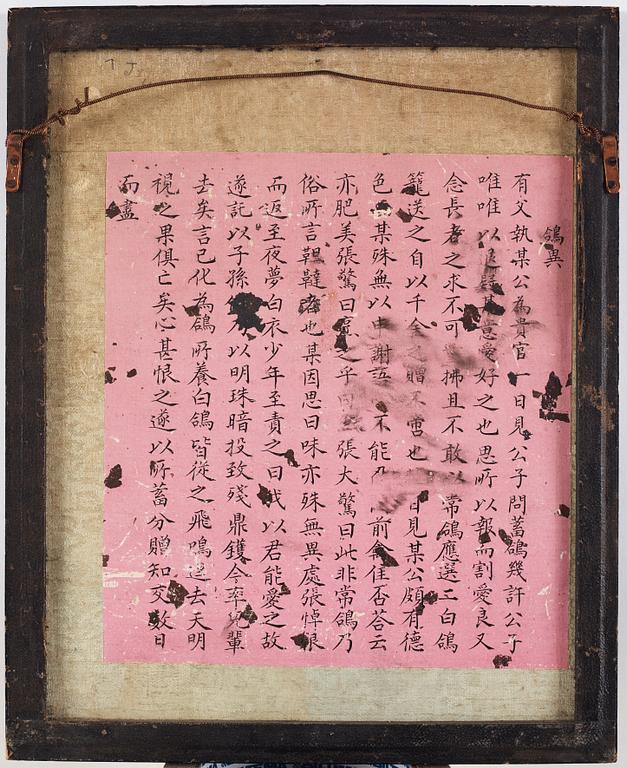 鴿異
有父執某公為貴官一日見公子問蓄鴿幾許公子
唯唯以退疑意愛好之也思所以報而割愛良又
念長者之求不可拂且不敢以常鴿應選二白鴿
籠送之自以千金之贈不啻也日見某公頗有德
色某殊無以申謝語不能前禽佳否荅云
亦肥美張驚曰烹之乎曰然張大驚曰此非常鴿乃
俗所言靼韃者也某因思曰味亦殊無異處張悼恨
而返至夜夢白衣少年至責之曰我以君能愛之故
遂託以子孫以明珠暗投致殘鼎鑊今率兒輩
去矣言已化為鴿所養白鴿皆從之飛鳴逕去天明
視之果俱亡矣心甚恨之遂以所蓄分贈知交數日
而盡